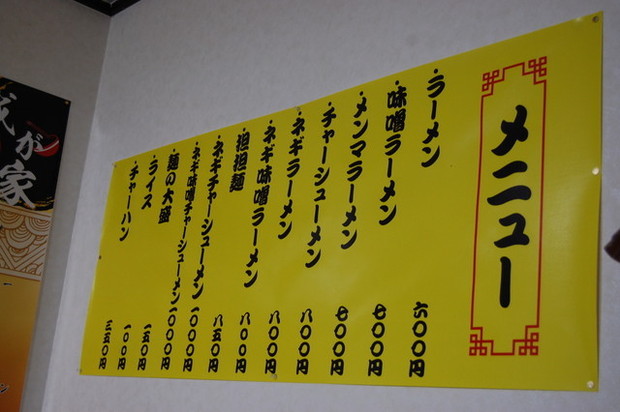 メニュー
・ラーメン 六〇〇円
・味噌ラーメン 七〇〇円
・メンマラーメン 七〇〇円
・チャーシューメン 八〇〇円
・ネギラーメン 八〇〇円
・ネギ味噌ラーメン 八〇〇円
・担担麺 八五〇円
・ネギチャーシューメン 一〇〇〇円
・ネギ味噌チャーシューメン 一〇〇〇円
・麺の大盛 一五〇円
・ライス 一〇〇円
・チャーハン 三五〇円
が家